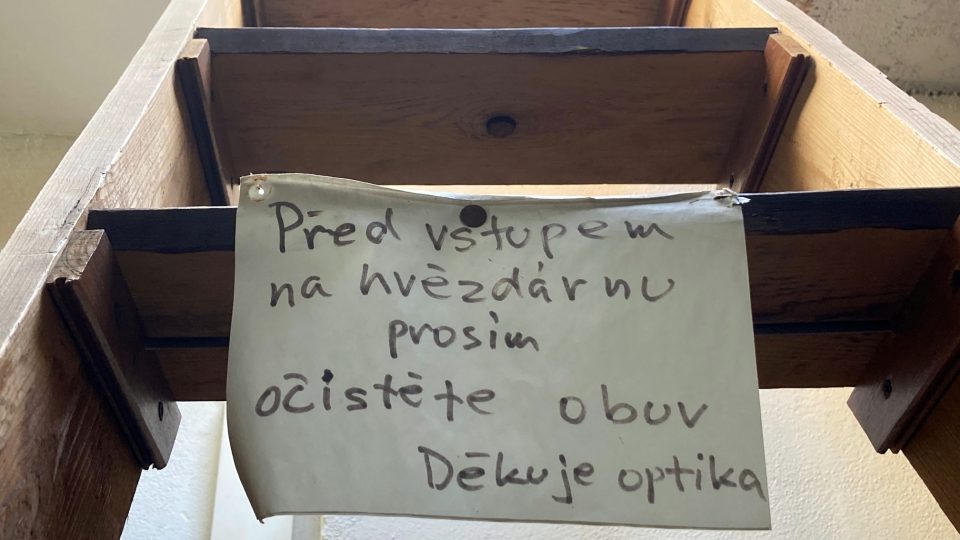 Před vstupem
na hvězdárnu
prosim
očistěte obuv
Děkuje optika